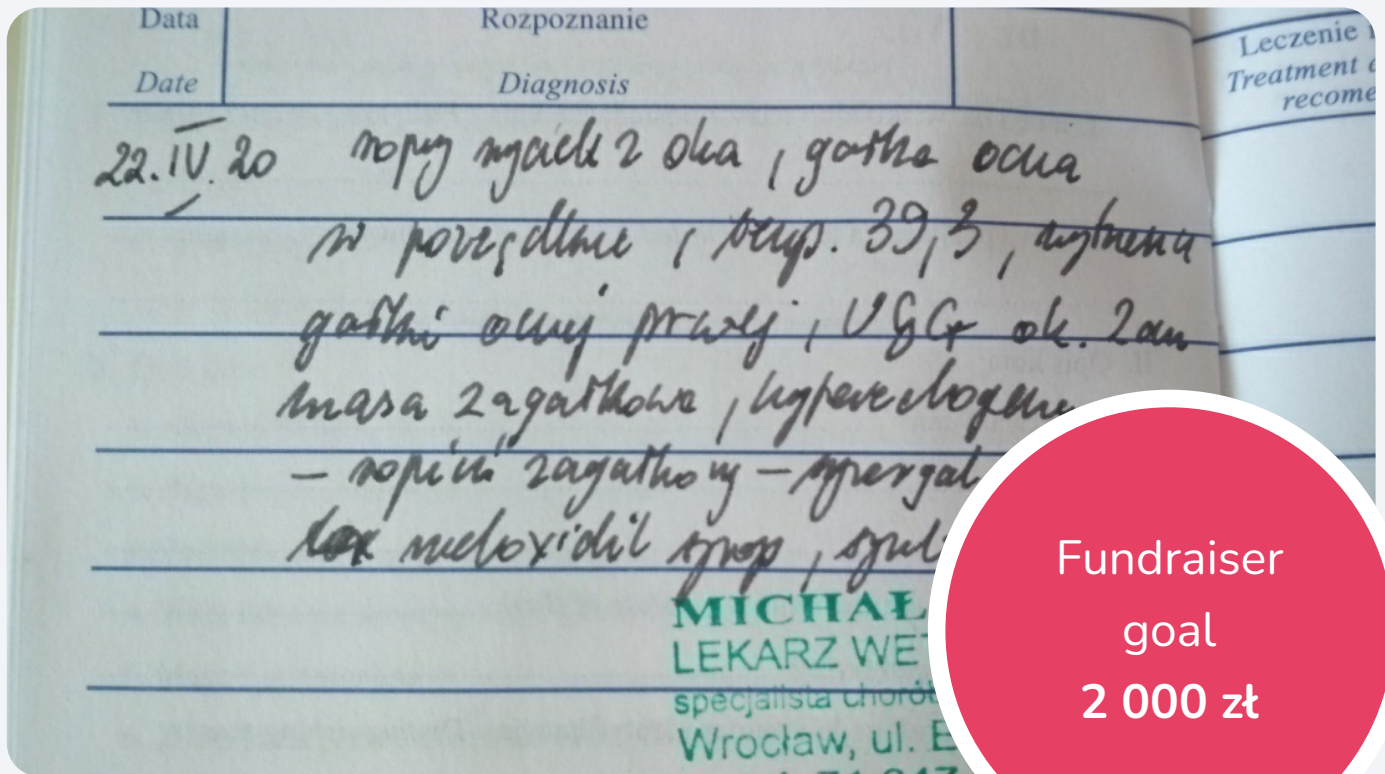 Data Rozpoznanie
Date Diagnosis
Leczenie
Treatment
recome
22.IV.20 ropny wyciek z oka, gałka oczna
w porządku, temp. 39,3, wytrzeszcz
gałki ocznej prawej, USG ok. 2cm
masa zagałkowa, hyperechogen
– ropień zagałkowy –
meloxidil syrop,
II. Opis kota
MICHAŁ
LEKARZ WET
specjalista chorób
Wrocław, ul. E
Fundraiser
goal
2 000 zł